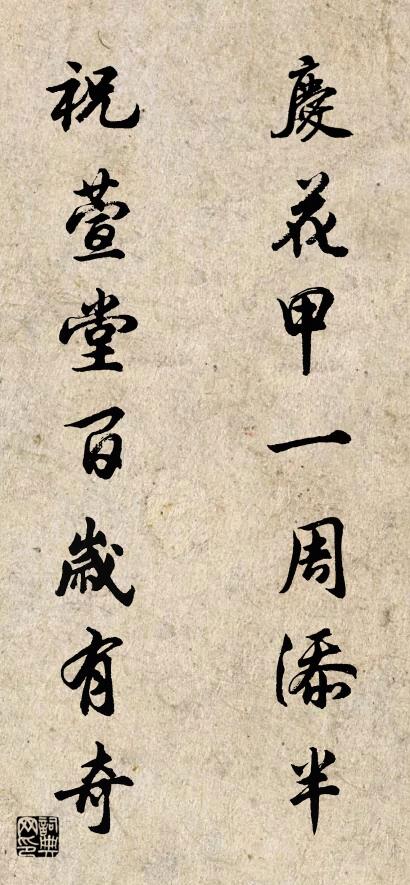 慶花甲一周添半
祝萱堂百歲有奇
詞典網印